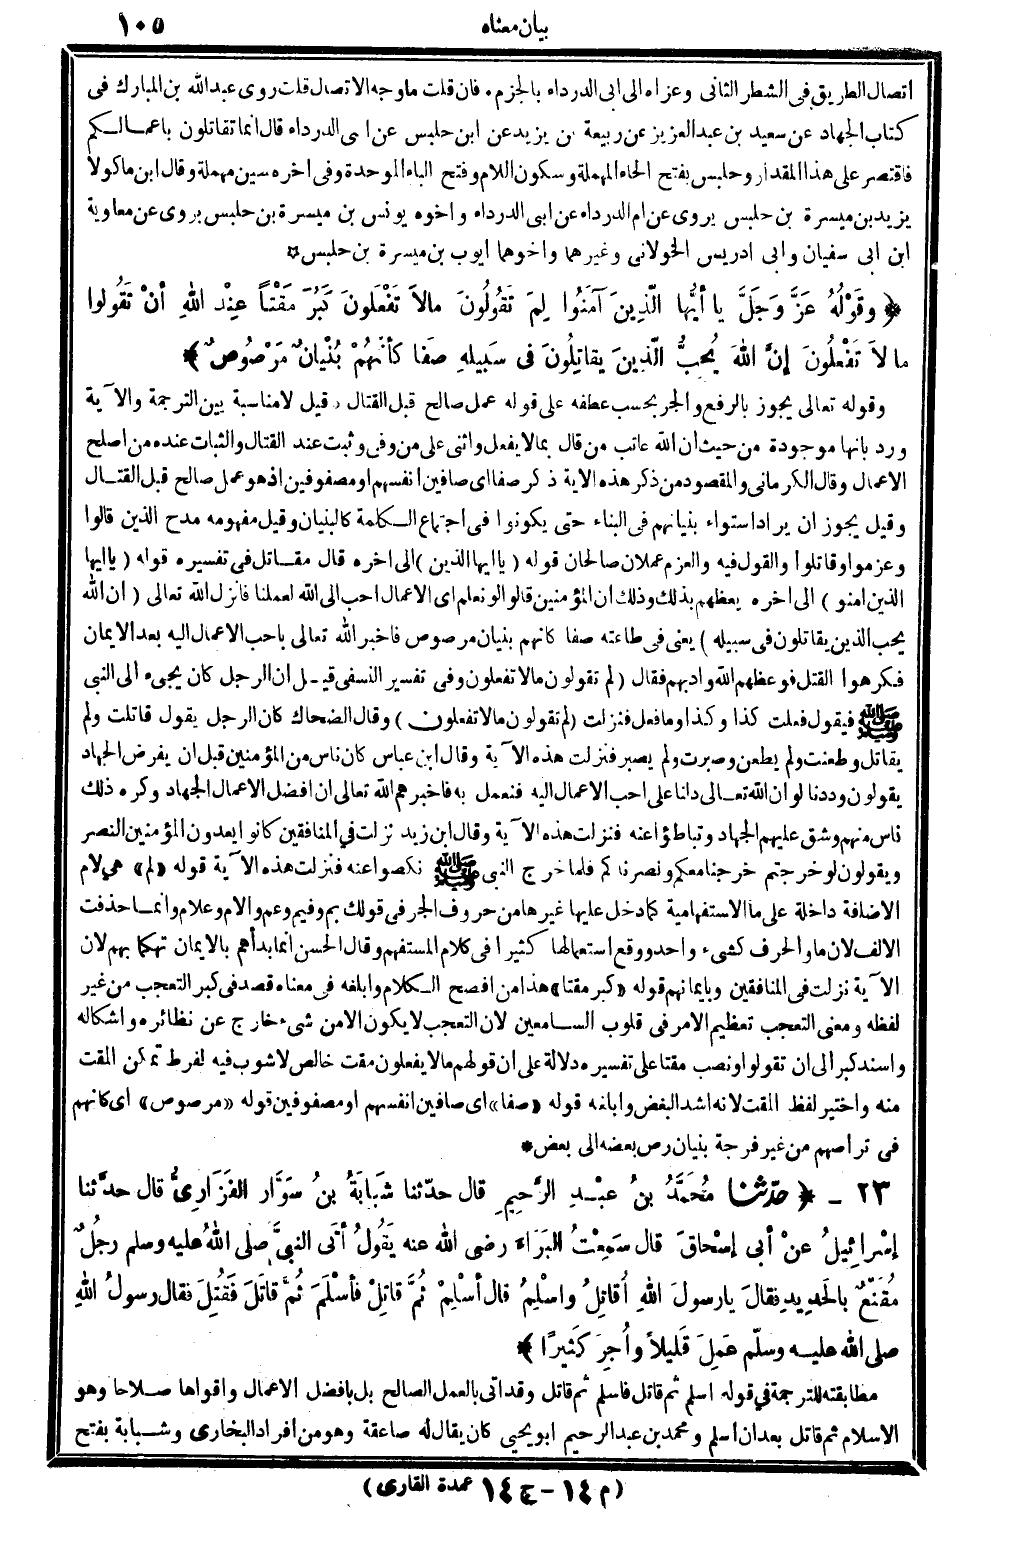 بيان معناه ١٠٥
اتصال الطريق في الشطر الثاني وعزاه الى ابي الدرداء بالجزم ٠ فان قلت ما وجه الاتصال قلت روى عبد الله بن المبارك في
كتاب الجهاد عن سعيد بن عبد العزيز عن ربيعة بن يزيد عن ابن حلبس عن ابى الدرداء قال انما تقاتلون باعمالكم
فاقتصر على هذا المقدار وحلبس بفتح الحاء المهملة وسكون اللام وفتح الباء الموحدة وفي اخره سين مهملة وقال ابن ماكولا
يزيد بن ميسرة بن حلبس يروى عن ام الدرداء عن ابى الدرداء واخوه يونس بن ميسرة بن حلبس يروى عن معاوية
ابن ابى سفيان وابى ادريس الخولانى وغيرهما واخوهما ايوب بن ميسرة بن حلبس ☆
﴿ وقَوْلُهُ عَزَّ وَجَلَّ يا أيُّها الَّذِينَ آمَنُوا لِمَ تَقُولُونَ مالاَ تَفْعَلونَ كَبُرَ مَقْتاً عِنْد اللهِ أنْ تَقُولوا
مالاَ تَفْعلُونَ إنَّ اللهَ يُحِبُّ الَّذِينَ يقاتِلُونَ في سَبيلهِ صَفا كأنَّهُمْ بُنْيانٌ مَرْصُوصٌ ﴾
وقوله تعالى يجوز بالرفع والجر بحسب عطفه على قوله عمل صالح قبل القتال . قيل لا مناسبة بين الترجمة والآية
ورد بانها موجودة من حيث أن الله عاتب من قال بما لا يفعل واثنى على من وفى وثبت عند القتال والثبات عنده من اصلح
الاعمال وقال الكرمانى والمقصود من ذكر هذه الاية ذكر صفا اى صافين انفسهم او مصفوفين اذ هو عمل صالح قبل القتال
وقيل يجوز ان يراد استواء بنيانهم في البناء حتى يكونوا في اجتماع الكلمة كالبنيان وقيل مفهومه مدح الذين قالوا
وعزموا وقاتلوا والقول فيه والعزم عملان صالحان قوله ( يا ايها الذين ) الى اخره قال مقاتل في تفسيره قوله ( يا ايها
الذين امنو ) الى اخره يعظهم بذلك وذلك ان المؤمنين قالوا لو نعلم اى الاعمال احب الى الله لعملنا فانزل الله تعالى ( ان الله
يحب الذين يقاتلون في سبيله ) يعنى في طاعته صفا كانهم بنيان مرصوص فاخبر الله تعالى باحب الاعمال اليه بعد الايمان
فكرهوا القتل فوعظهم الله وادبهم فقال ( لم تقولون مالا تفعلون وفي تفسير النسفى قيل ان الرجل كان يجىء الى النبى
ﷺ فيقول فعلت كذا وكذا وما فعل فنزلت ( لم تقولون مالا تفعلون ) وقال الضحاك كان الرجل يقول قاتلت ولم
يقاتل وطعنت ولم يطعن وصبرت ولم يصبر فنزلت هذه الآية وقال ابن عباس كان ناس من المؤمنين قبل ان يفرض الجهاد
يقولون وددنا لو ان الله تعالى دلنا على احب الاعمال اليه فنعمل به فاخبرهم الله تعالى ان افضل الاعمال الجهاد وكره ذلك
ناس منهم وشق عليهم الجهاد وتباطؤا عنه فنزلت هذه الآية وقال ابن زيد نزلت في المنافقين كانوا يعدون المؤمنين النصر
ويقولون لو خرجتم خرجنا معكم ونصرناكم فلما خرج النبى ﷺ نكصوا عنه فنزلت هذه الآية قوله «لم» هي لام
الاضافة داخلة على ما الاستفهامية كما دخل عليها غيرها من حروف الجر في قولك بم وفيم وعم والام وعلام وانما حذفت
الالف لان ما والحرف كشىء واحد ووقع استعمالها كثيرا في كلام المستفهم وقال الحسن انما بدأهم بالايمان تهكما بهم لان
الآية نزلت في المنافقين وبايمانهم قوله «كبر مقتا» هذا من افصح الكلام وابلغه في معناه قصد في كبر التعجب من غير
لفظه ومعنى التعجب تعظيم الامر في قلوب السامعين لان التعجب لا يكون الا من شىء خارج عن نظائره واشكاله
واسند كبر الى ان تقولوا ونصب مقتا على تفسيره دلالة على ان قولهم مالا يفعلون مقت خالص لا شوب فيه لفرط تمكن المقت
منه واختير لفظ المقت لانه اشد البغض وابلغه قوله «صفا» اى صافين انفسهم او مصفوفين قوله «مرصوص» اى كانهم
في تراصهم من غير فرجة بنيان رص بعضه الى بعض *
٢٣ ـ ﴿ حدثنا مُحَمَّدُ بنُ عبْدِ الرَّحِيمِ قال حدّثنا شَبابَةُ بنُ سَوَّار الفَزَارِىُّ قال حدَّثنا
إسْرائِيلُ عنْ أبي إسْحاقَ قال سَمِعْتُ البَرَاءَ رضى الله عنه يَقُولُ أتَى النبىَّ صلى اللهُ عليه وسلم رجُلٌ
مُقَنَّعٌ بالحَدِيدِ فقالَ يا رسولَ اللهِ أُقاتِلُ واسْلِمُ قال أسْلِمْ ثُمَّ قاتِلْ فأسْلَمَ ثُمَّ قاتَلَ فَقُتِلَ فقال رسولُ اللهِ
صلى الله عليه وسلَّم عَمِلَ قَليلاً وأُجِرَ كَثيرًا ﴾
مطابقته للترجمة في قوله اسلم ثم قاتل فاسلم ثم قاتل وقد اتى بالعمل الصالح بل بافضل الاعمال واقواها صلاحا وهو
الاسلام ثم قاتل بعد ان اسلم ومحمد بن عبد الرحيم ابو يحيى كان يقال له صاعقة وهو من افراد البخارى وشبابة بفتح
(م ١٤ – ج ١٤ عمدة القارى)